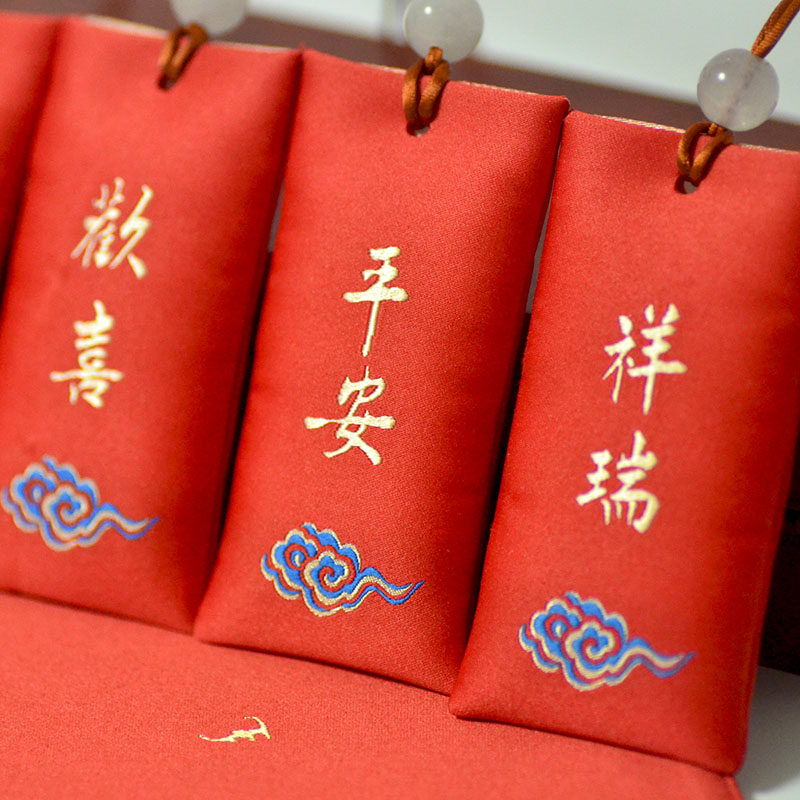 歡喜
平安
祥瑞